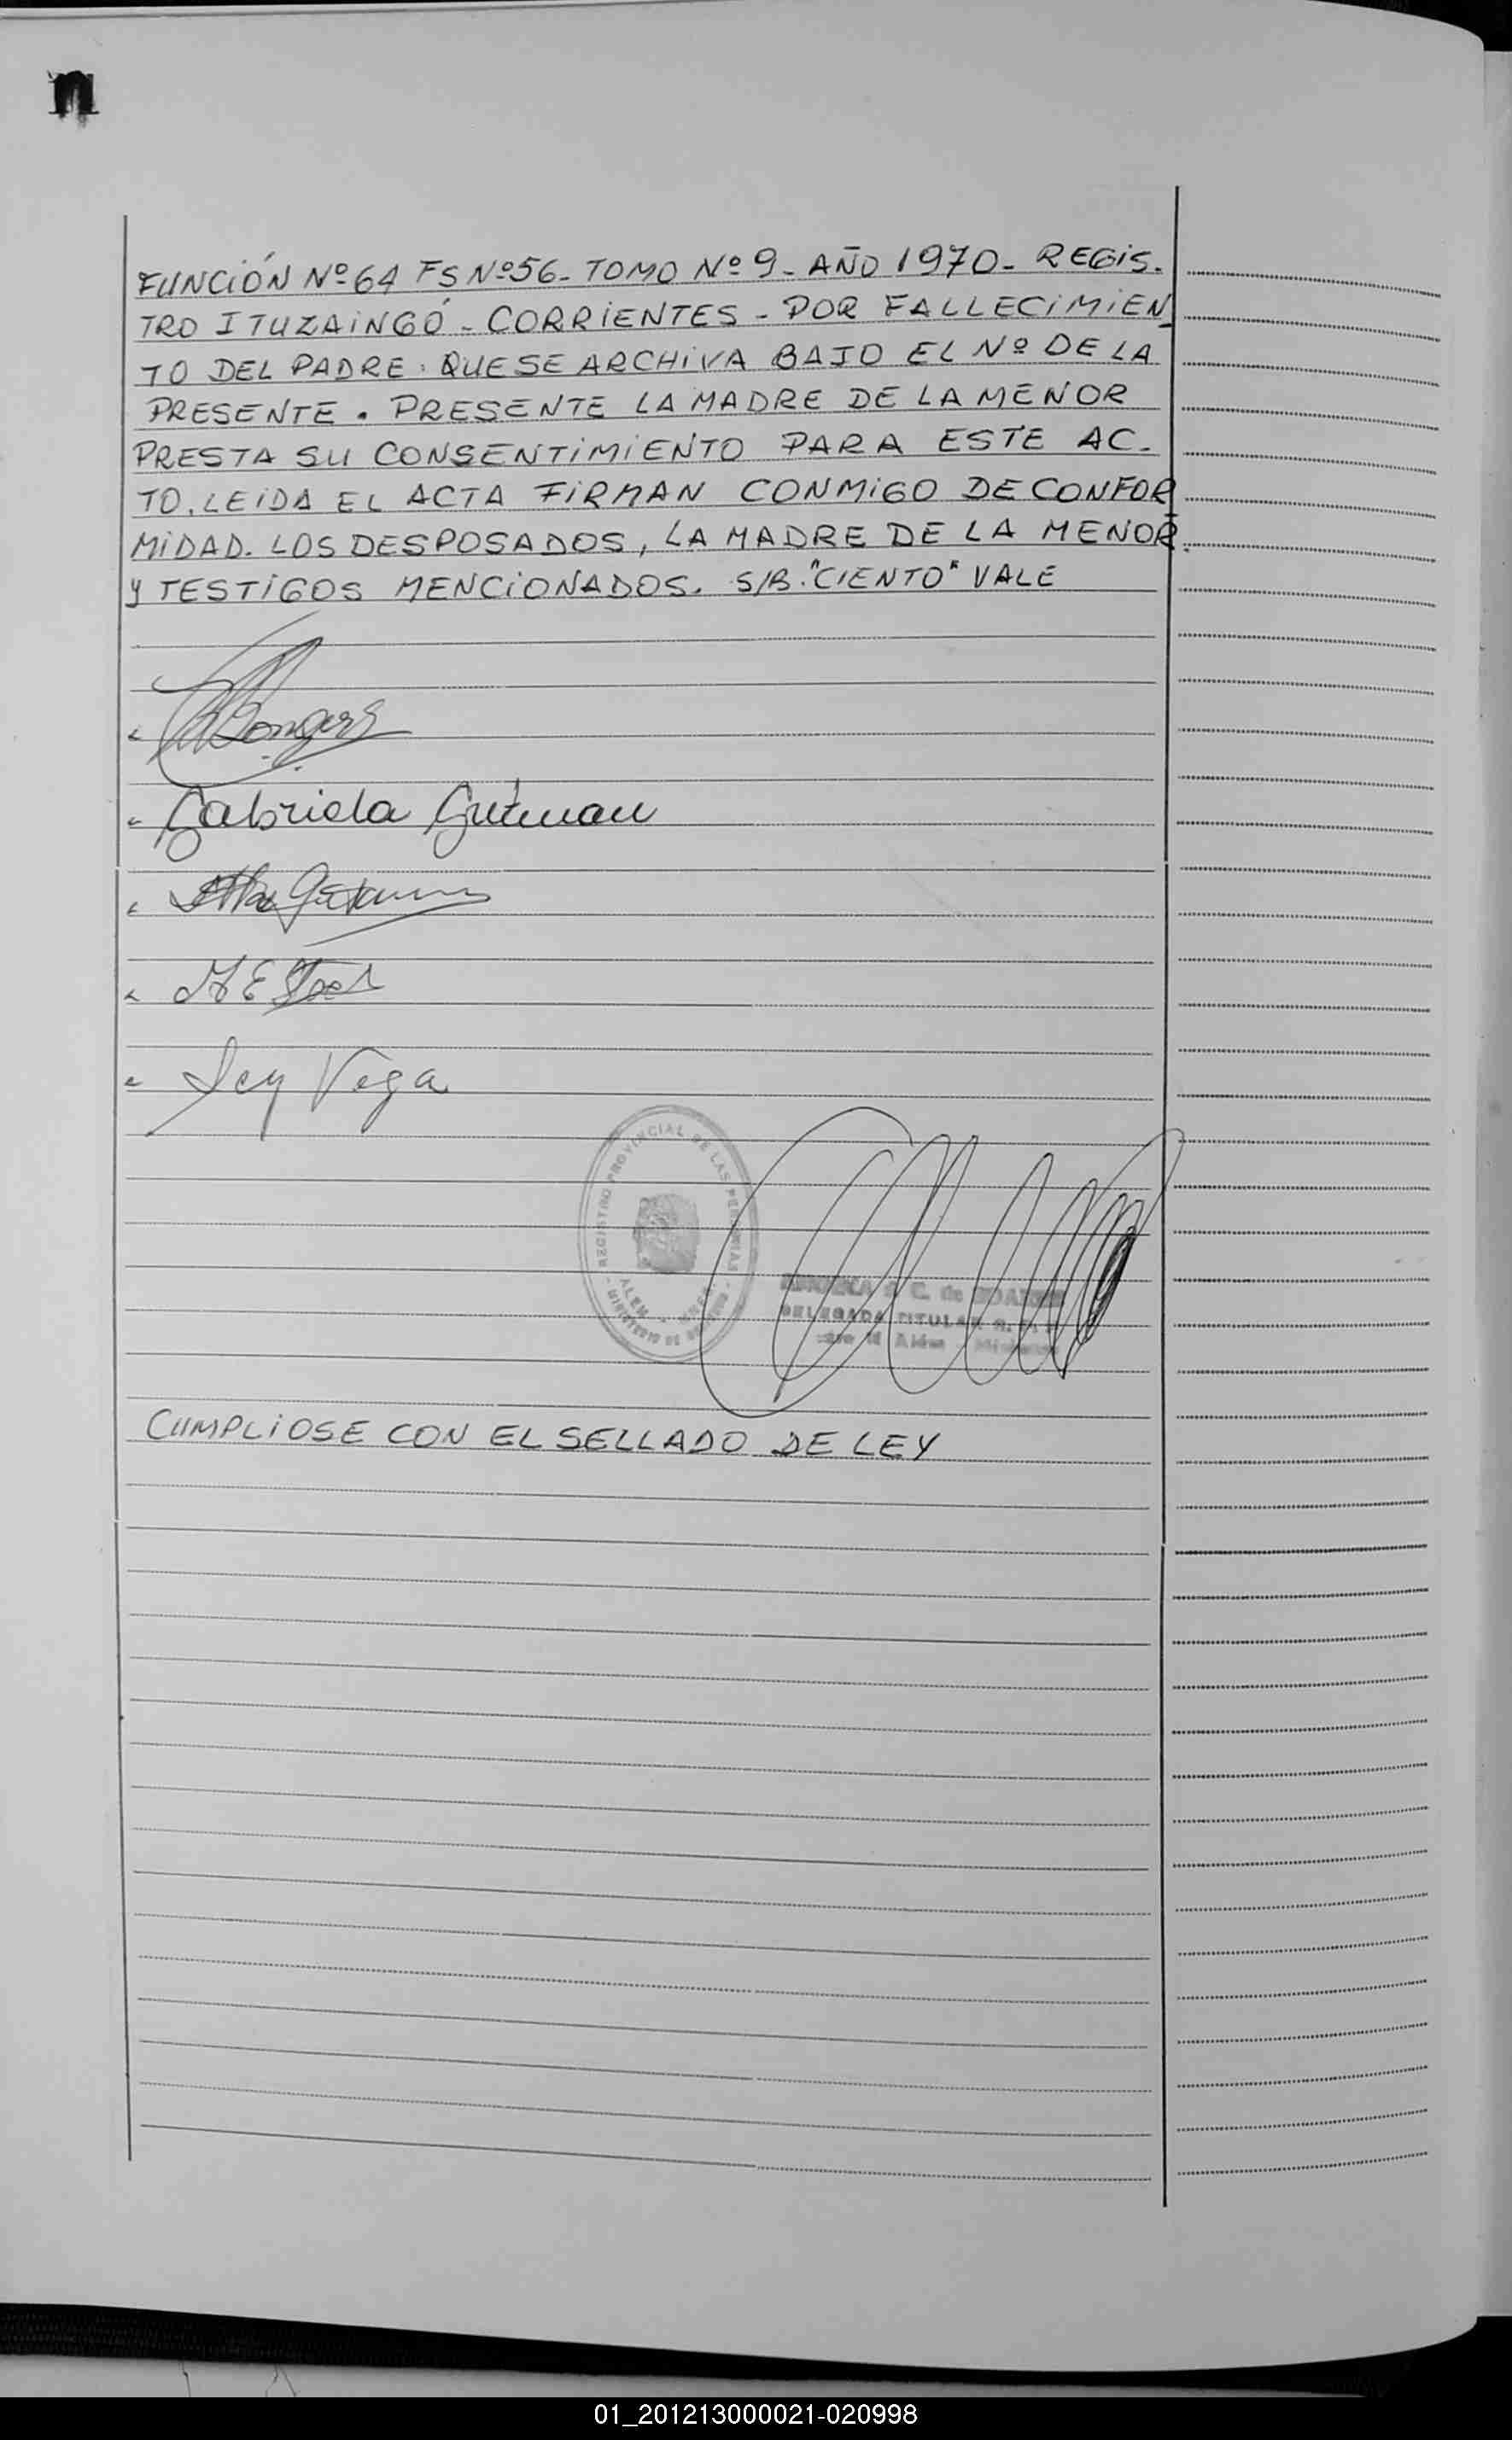 FUNCIÓN Nº 64 FS Nº 56- TOMO Nº 9- AÑO 1970- REGIS.
TRO ITUZAINGÓ- CORRIENTES - POR FALLECIMIEN_
TO DEL PADRE. QUE SE ARCHIVA BAJO EL Nº DE LA
PRESENTE. PRESENTE LA MADRE DE LA MENOR
PRESTA SU CONSENTIMIENTO PARA ESTE AC-
TO. LEIDA EL ACTA FIRMAN CONMIGO DE CONFOR_
MIDAD. LOS DESPOSADOS, LA MADRE DE LA MENOR.
Y TESTIGOS MENCIONADOS. S/B. "CIENTO" VALE
Bongers
Gabriela Gutman
Vega
REGISTRO PROVINCIAL DE LAS PERSONAS
ALEM
MINISTERIO DE
DELEGADA TITULAR
CUMPLIOSE CON EL SELLADO DE LEY
01_201213000021-020998